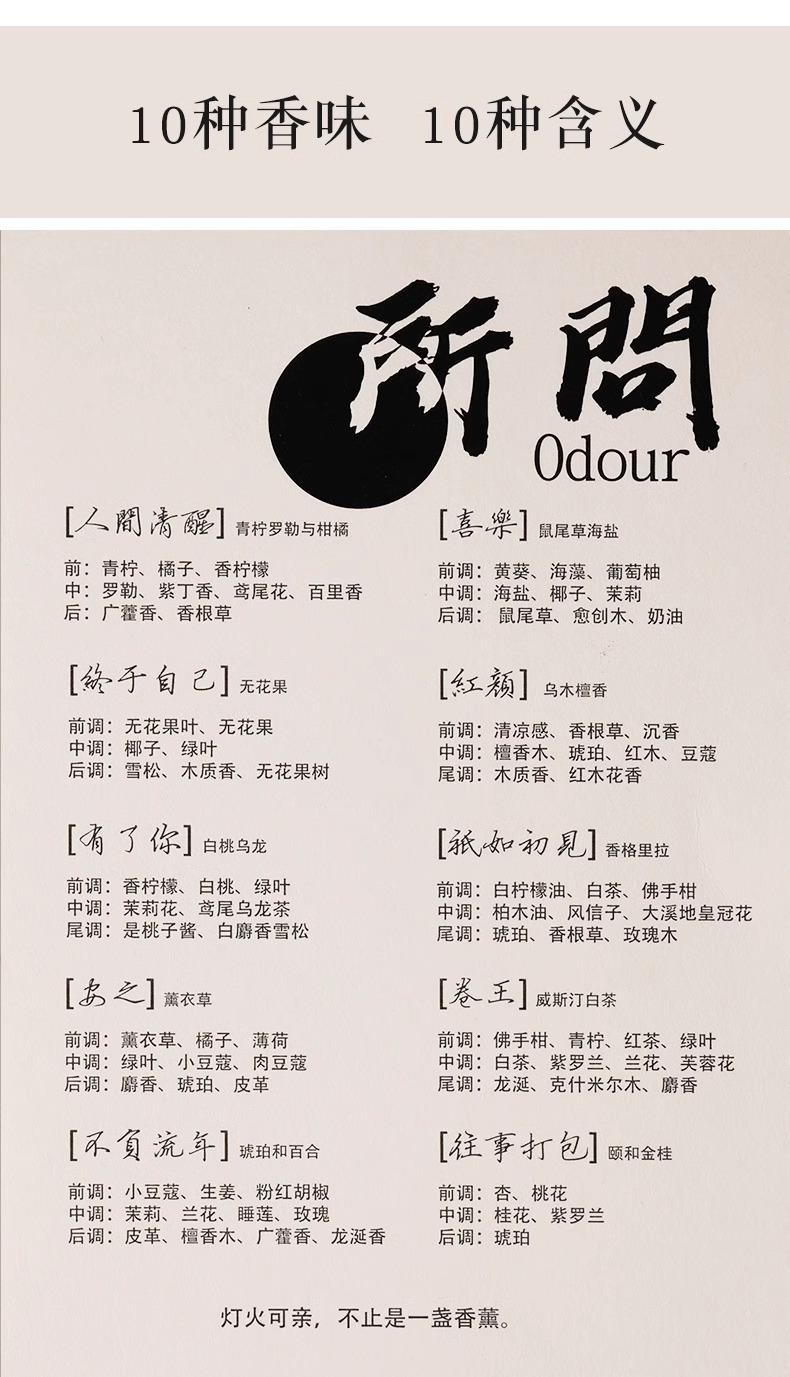 10种香味 10种含义
所問
Odour
[人間清醒] 青柠罗勒与柑橘
前：青柠、橘子、香柠檬
中：罗勒、紫丁香、鸢尾花、百里香
后：广藿香、香根草
[喜樂] 鼠尾草海盐
前调：黄葵、海藻、葡萄柚
中调：海盐、椰子、茉莉
后调： 鼠尾草、愈创木、奶油
[终于自己] 无花果
前调：无花果叶、无花果
中调：椰子、绿叶
后调：雪松、木质香、无花果树
[紅顏] 乌木檀香
前调：清凉感、香根草、沉香
中调：檀香木、琥珀、红木、豆蔻
尾调：木质香、红木花香
[有了你] 白桃乌龙
前调：香柠檬、白桃、绿叶
中调：茉莉花、鸢尾乌龙茶
尾调：是桃子酱、白麝香雪松
[祇如初見] 香格里拉
前调：白柠檬油、白茶、佛手柑
中调：柏木油、风信子、大溪地皇冠花
尾调：琥珀、香根草、玫瑰木
[安之] 薰衣草
前调：薰衣草、橘子、薄荷
中调：绿叶、小豆蔻、肉豆蔻
后调：麝香、琥珀、皮革
[卷王] 威斯汀白茶
前调：佛手柑、青柠、红茶、绿叶
中调：白茶、紫罗兰、兰花、芙蓉花
尾调：龙涎、克什米尔木、麝香
[不負流年] 琥珀和百合
前调：小豆蔻、生姜、粉红胡椒
中调：茉莉、兰花、睡莲、玫瑰
后调：皮革、檀香木、广藿香、龙涎香
[往事打包] 颐和金桂
前调：杏、桃花
中调：桂花、紫罗兰
后调：琥珀
灯火可亲，不止是一盏香薰。